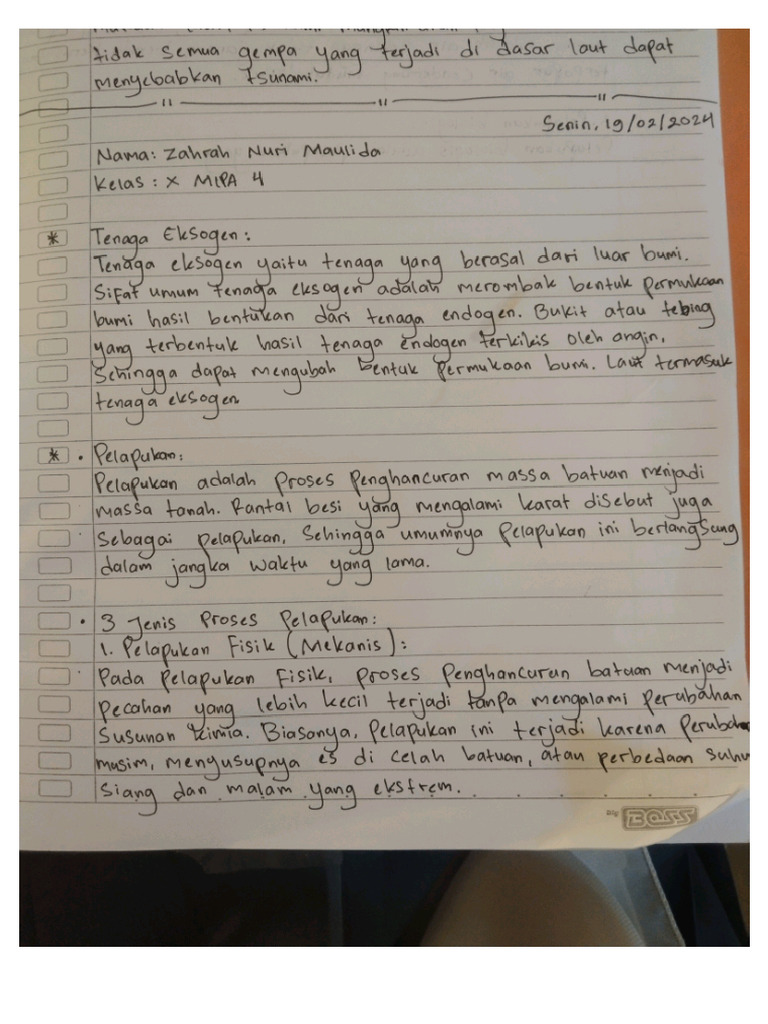 tidak semua gempa yang terjadi di dasar laut dapat
menyebabkan tsunami.
Senin, 19/02/2024
Nama: Zahrah Nuri Maulida
Kelas : X MIPA 4
* Tenaga Eksogen :
Tenaga eksogen yaitu tenaga yang berasal dari luar bumi.
Sifat umum tenaga eksogen adalah merombak bentuk permukaan
bumi hasil bentukan dari tenaga endogen. Bukit atau tebing
yang terbentuk hasil tenaga endogen terkikis oleh angin,
Sehingga dapat mengubah bentuk permukaan bumi. Laut termasuk
tenaga eksogen
* • Pelapukan:
Pelapukan adalah proses penghancuran massa batuan menjadi
massa tanah. Rantai besi yang mengalami karat disebut juga
sebagai pelapukan, Sehingga umumnya pelapukan ini berlangsung
dalam jangka waktu yang lama.
• 3 Jenis Proses Pelapukan:
1. Pelapukan Fisik (Mekanis) :
Pada pelapukan Fisik, proses penghancuran batuan menjadi
pecahan yang lebih kecil terjadi tanpa mengalami perubahan
susunan kimia. Biasanya, pelapukan ini terjadi karena
musim, mengusupnya es di celah batuan, atau perbedaan suhu
siang dan malam yang ekstrem.
BOSS